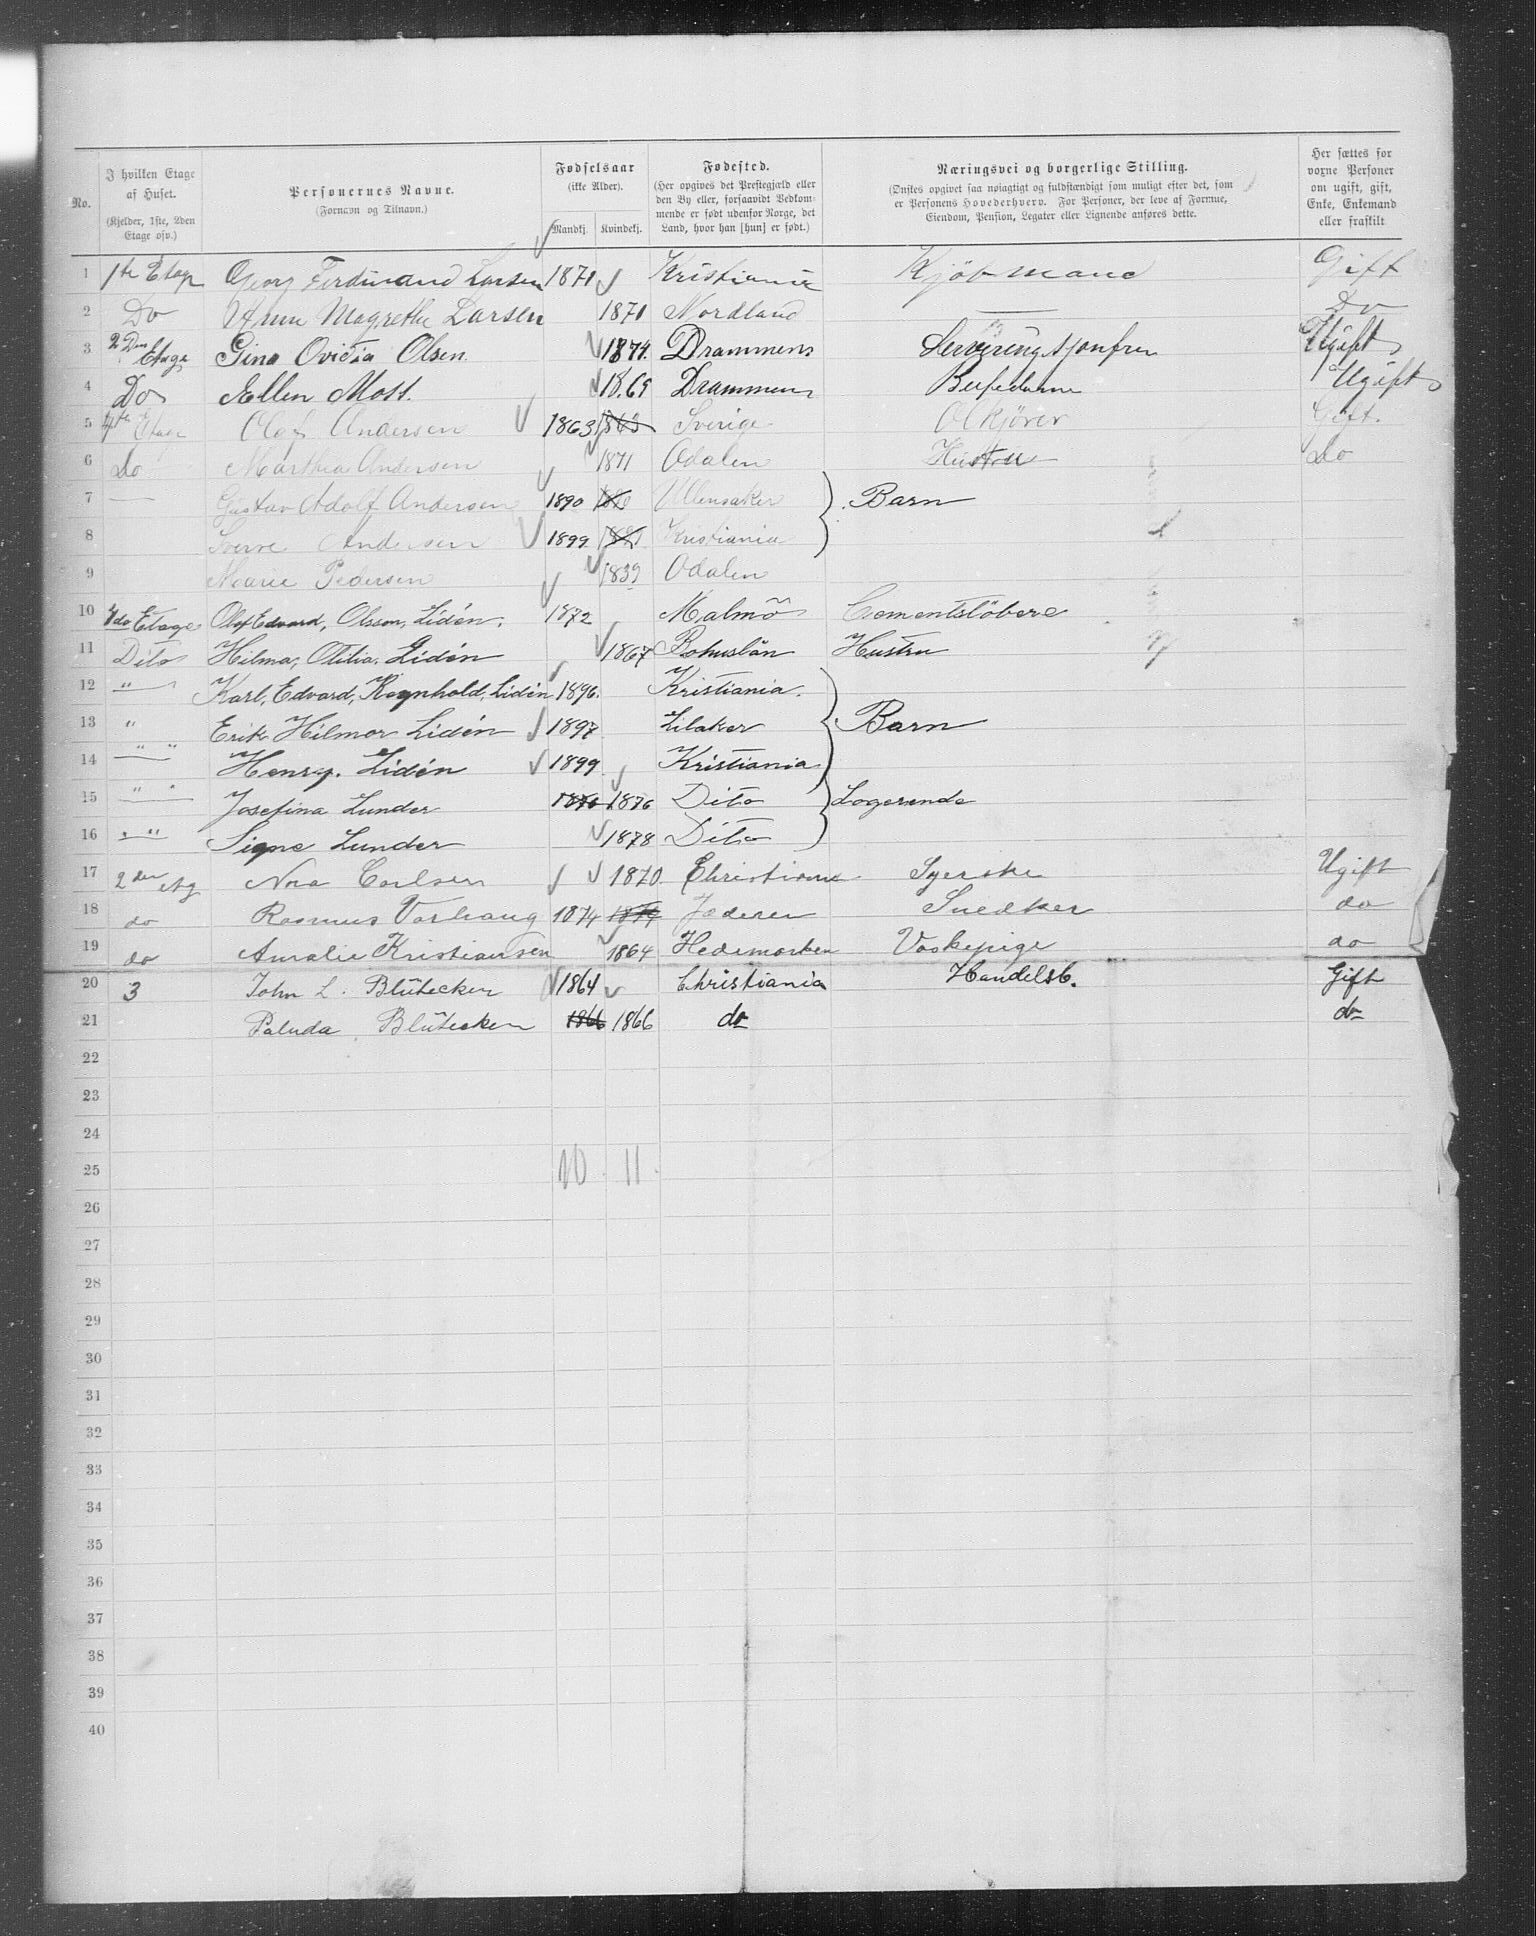 No. | I hvilken Etage af Huset. (Kjelder, 1ste, 2den Etage osv.) | Personernes Navne. (Fornavn og Tilnavn.) | Fødselsaar (ikke Alder). Mandkj. Kvindekj. | Fødested. (Her opgives det Prestegjæld eller den By eller, forsaavidt Vedkommende er født udenfor Norge, det Land, hvor han [hun] er født.) | Næringsvei og borgerlige Stilling. (Ønskes opgivet saa nøiagtigt og fuldstændigt som muligt efter det, som er Personens Hovederhverv. For Personer, der leve af Formue, Eiendom, Pension, Legater eller Lignende anføres dette. | Her sættes for voxne Personer om ugift, gift, Enke, Enkemand eller fraskilt
1 1ste Etage Georg Ferdinand Larsen 1871 Kristiania Kjöbmand Gift
2 Do Anna Magrethe Larsen 1871 Nordland — Do
3 2den Etage Gina Ovidia Olsen 1874. Drammens Serveringsjonfru Ugift
4 Do Ellen Moss. 18.69 Drammens Bufedame Ugift
5 4de Etage Olaf Andersen 1863 1863 Sverige Ølkjörer Gift.
6 Do Marthea Andersen 1871 Odalen Hustru Do
7 — Gustav Adolf Andersen 1890 Ullensaker Barn
8 Sverre Andersen 1899 Kristiania
9 Marie Pedersen 1839 Odalen
10 4de Etage Olof Edvard, Olsson, Lidén. 1872 Malmö Cementstöbere
11 Dito Hilma, Otilia. Lidén 1867 Bohuslän Hustru
12 " Karl, Edvard, Ragnhold, Lidén 1896. Kristiania.
13 " Erik Hilmor Lidén 1897 Lilaker Barn
14 " " Henry. Lidén 1899 Kristiania
15 " " Josefina Lunder 1876 1876 Dito Logerende
16 " " Signe Lunder 1878 Dito
17 2den Etg Nora Carlsen 1870. Christiania Syerske Ugift
18 do Rasmus Varhaug 1874 1874 Jæderen Snedker do
19 do Amalie Kristiansen 1864 Hedemarken Vaskepige do
20 3 John L. Blütecker 1864 Christiania Handelsb. Gift
21 Paluda Blütecker 1866 1866 do do
22
23
24
25 10. 11.
26
27
28
29
30
31
32
33
34
35
36
37
38
39
40